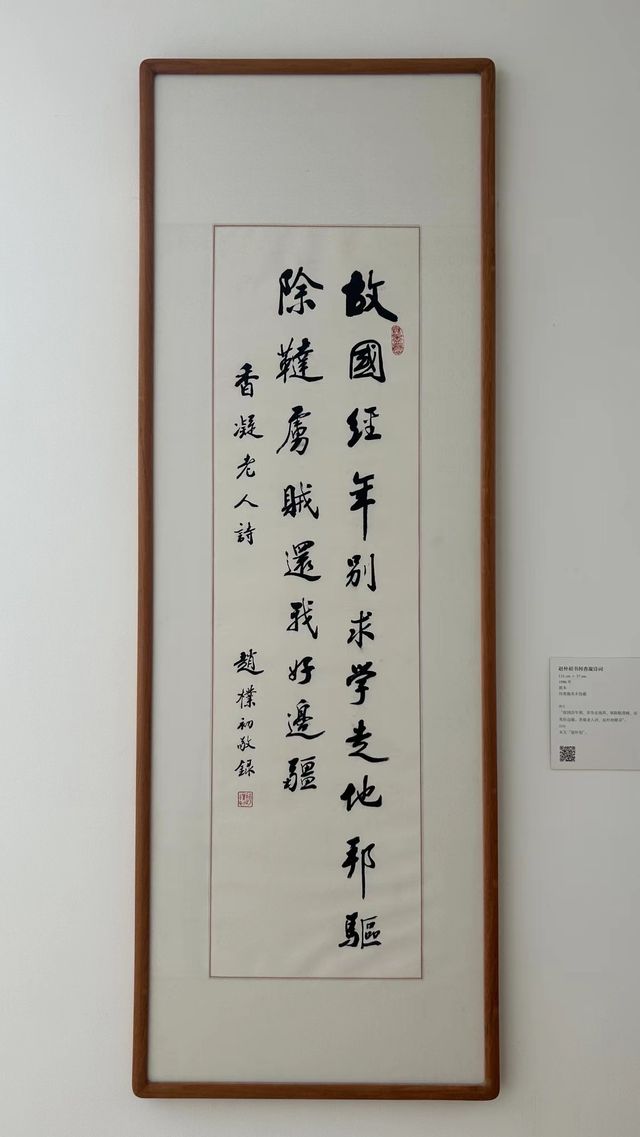 故國經年別求学走他邦驅
除韃虜賊還我好邊疆
香凝老人詩
趙樸初敬録
赵朴初书何香凝诗词